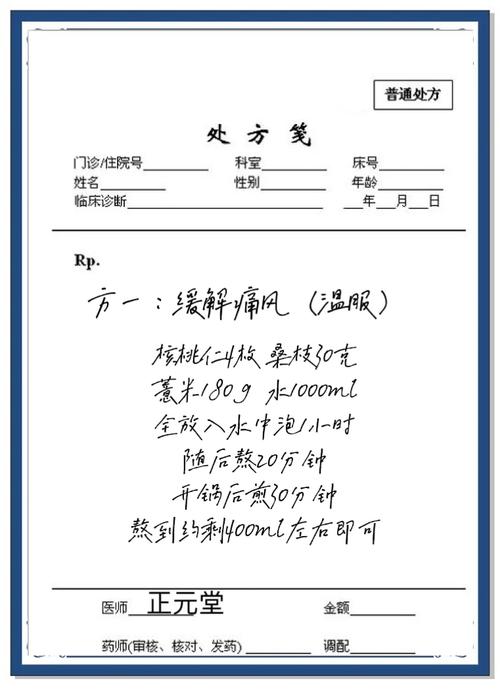 普通处方
处方笺
门诊/住院号________ 科室________ 床号________
姓名________ 性别________ 年龄________
临床诊断________ __年__月__日
Rp.
方一：缓解痛风（温服）
核桃仁4枚 桑枝30克
薏米180g 水1000ml
全放入水中泡1小时
随后熬20分钟
开锅后煎30分钟
熬到约剩400ml左右即可
医师 正元堂 金额________
药师(审核、核对、发药)________ 调配________